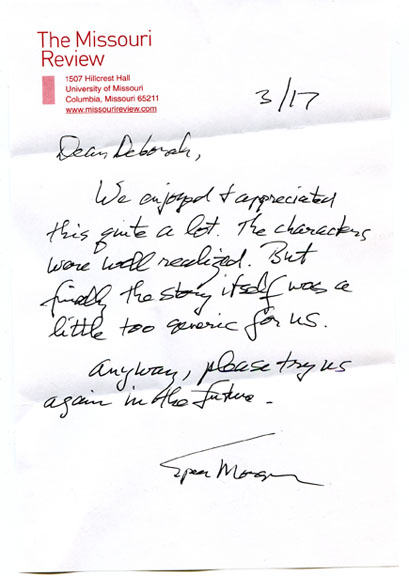 The Missouri
Review
1507 Hillcrest Hall
University of Missouri
Columbia, Missouri 65211
www.missourireview.com
3/17
Dear Deborah,
We enjoyed + appreciated
this quite a lot. The characters
were well realized. But
finally the story itself was a
little too generic for us.
Anyway, please try us
again in the future -
Speer Morgan